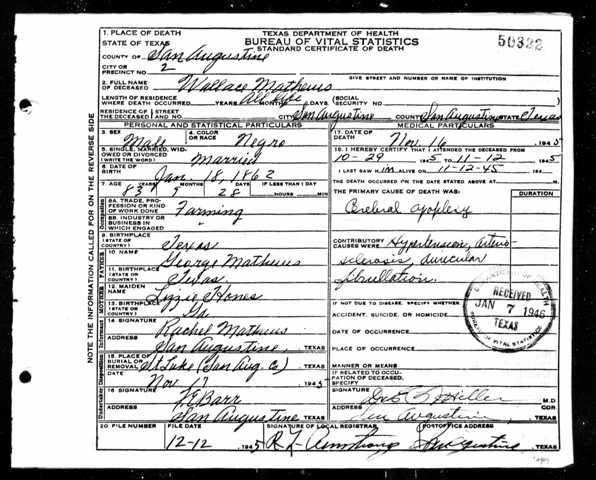 TEXAS DEPARTMENT OF HEALTH
BUREAU OF VITAL STATISTICS
STANDARD CERTIFICATE OF DEATH
50322
NOTE THE INFORMATION CALLED FOR ON THE REVERSE SIDE
1. PLACE OF DEATH
STATE OF TEXAS
COUNTY OF San Augustine
CITY OR PRECINCT NO. 2
GIVE STREET AND NUMBER OR NAME OF INSTITUTION
2. FULL NAME OF DECEASED Wallace Mathews
LENGTH OF RESIDENCE WHERE DEATH OCCURRED All Life YEARS MONTHS DAYS (SOCIAL SECURITY NO.)
RESIDENCE OF THE DECEASED STREET NO. CITY San Augustine COUNTY San Augustine STATE Texas
PERSONAL AND STATISTICAL PARTICULARS
3. SEX Male
4. COLOR OR RACE Negro
5. SINGLE, MARRIED, WIDOWED OR DIVORCED (WRITE THE WORD) Married
6. DATE OF BIRTH Jan. 18, 1862
7. AGE 83 YEARS 9 MONTHS 28 DAYS IF LESS THAN 1 DAY HOURS MIN
8A. TRADE, PROFESSION OR KIND OF WORK DONE Farming
8B. INDUSTRY OR BUSINESS IN WHICH ENGAGED "
9. BIRTHPLACE (STATE OR COUNTRY) Texas
10. NAME George Mathews
11. BIRTHPLACE (STATE OR COUNTRY) Texas
12. MAIDEN NAME Lizzie Hones
13. BIRTHPLACE (STATE OR COUNTRY)
14. SIGNATURE Rachel Mathews
ADDRESS San Augustine, TEXAS
15. PLACE OF BURIAL OR REMOVAL St Luke (San Aug. Co) TEXAS
DATE Nov 17 1945
16. SIGNATURE Barr
ADDRESS San Augustine TEXAS
MEDICAL PARTICULARS
17. DATE OF DEATH Nov 16 1945
18. I HEREBY CERTIFY THAT I ATTENDED THE DECEASED FROM
10-29 1945 TO 11-12 1945
I LAST SAW HIM ALIVE ON 11-12-45
THE DEATH OCCURRED ON THE DATE STATED ABOVE AT M.
THE PRIMARY CAUSE OF DEATH WAS:
DURATION
Cerebral apoplexy
CONTRIBUTORY CAUSES WERE: Hypertension, arterio-
sclerosis, auricular
fibrillation
IF NOT DUE TO DISEASE, SPECIFY WHETHER:
ACCIDENT, SUICIDE, OR HOMICIDE
DATE OF OCCURRENCE
PLACE OF OCCURRENCE
MANNER OR MEANS
IF RELATED TO OCCUPATION OF DECEASED, SPECIFY
SIGNATURE M.D.
ADDRESS San Augustine COR. TEXAS
RECEIVED
JAN 7 1946
TEXAS
20 FILE NUMBER
FILE DATE 12-12 1945
SIGNATURE OF LOCAL REGISTRAR R. L. Armstrong
POSTOFFICE ADDRESS San Augustine, TEXAS